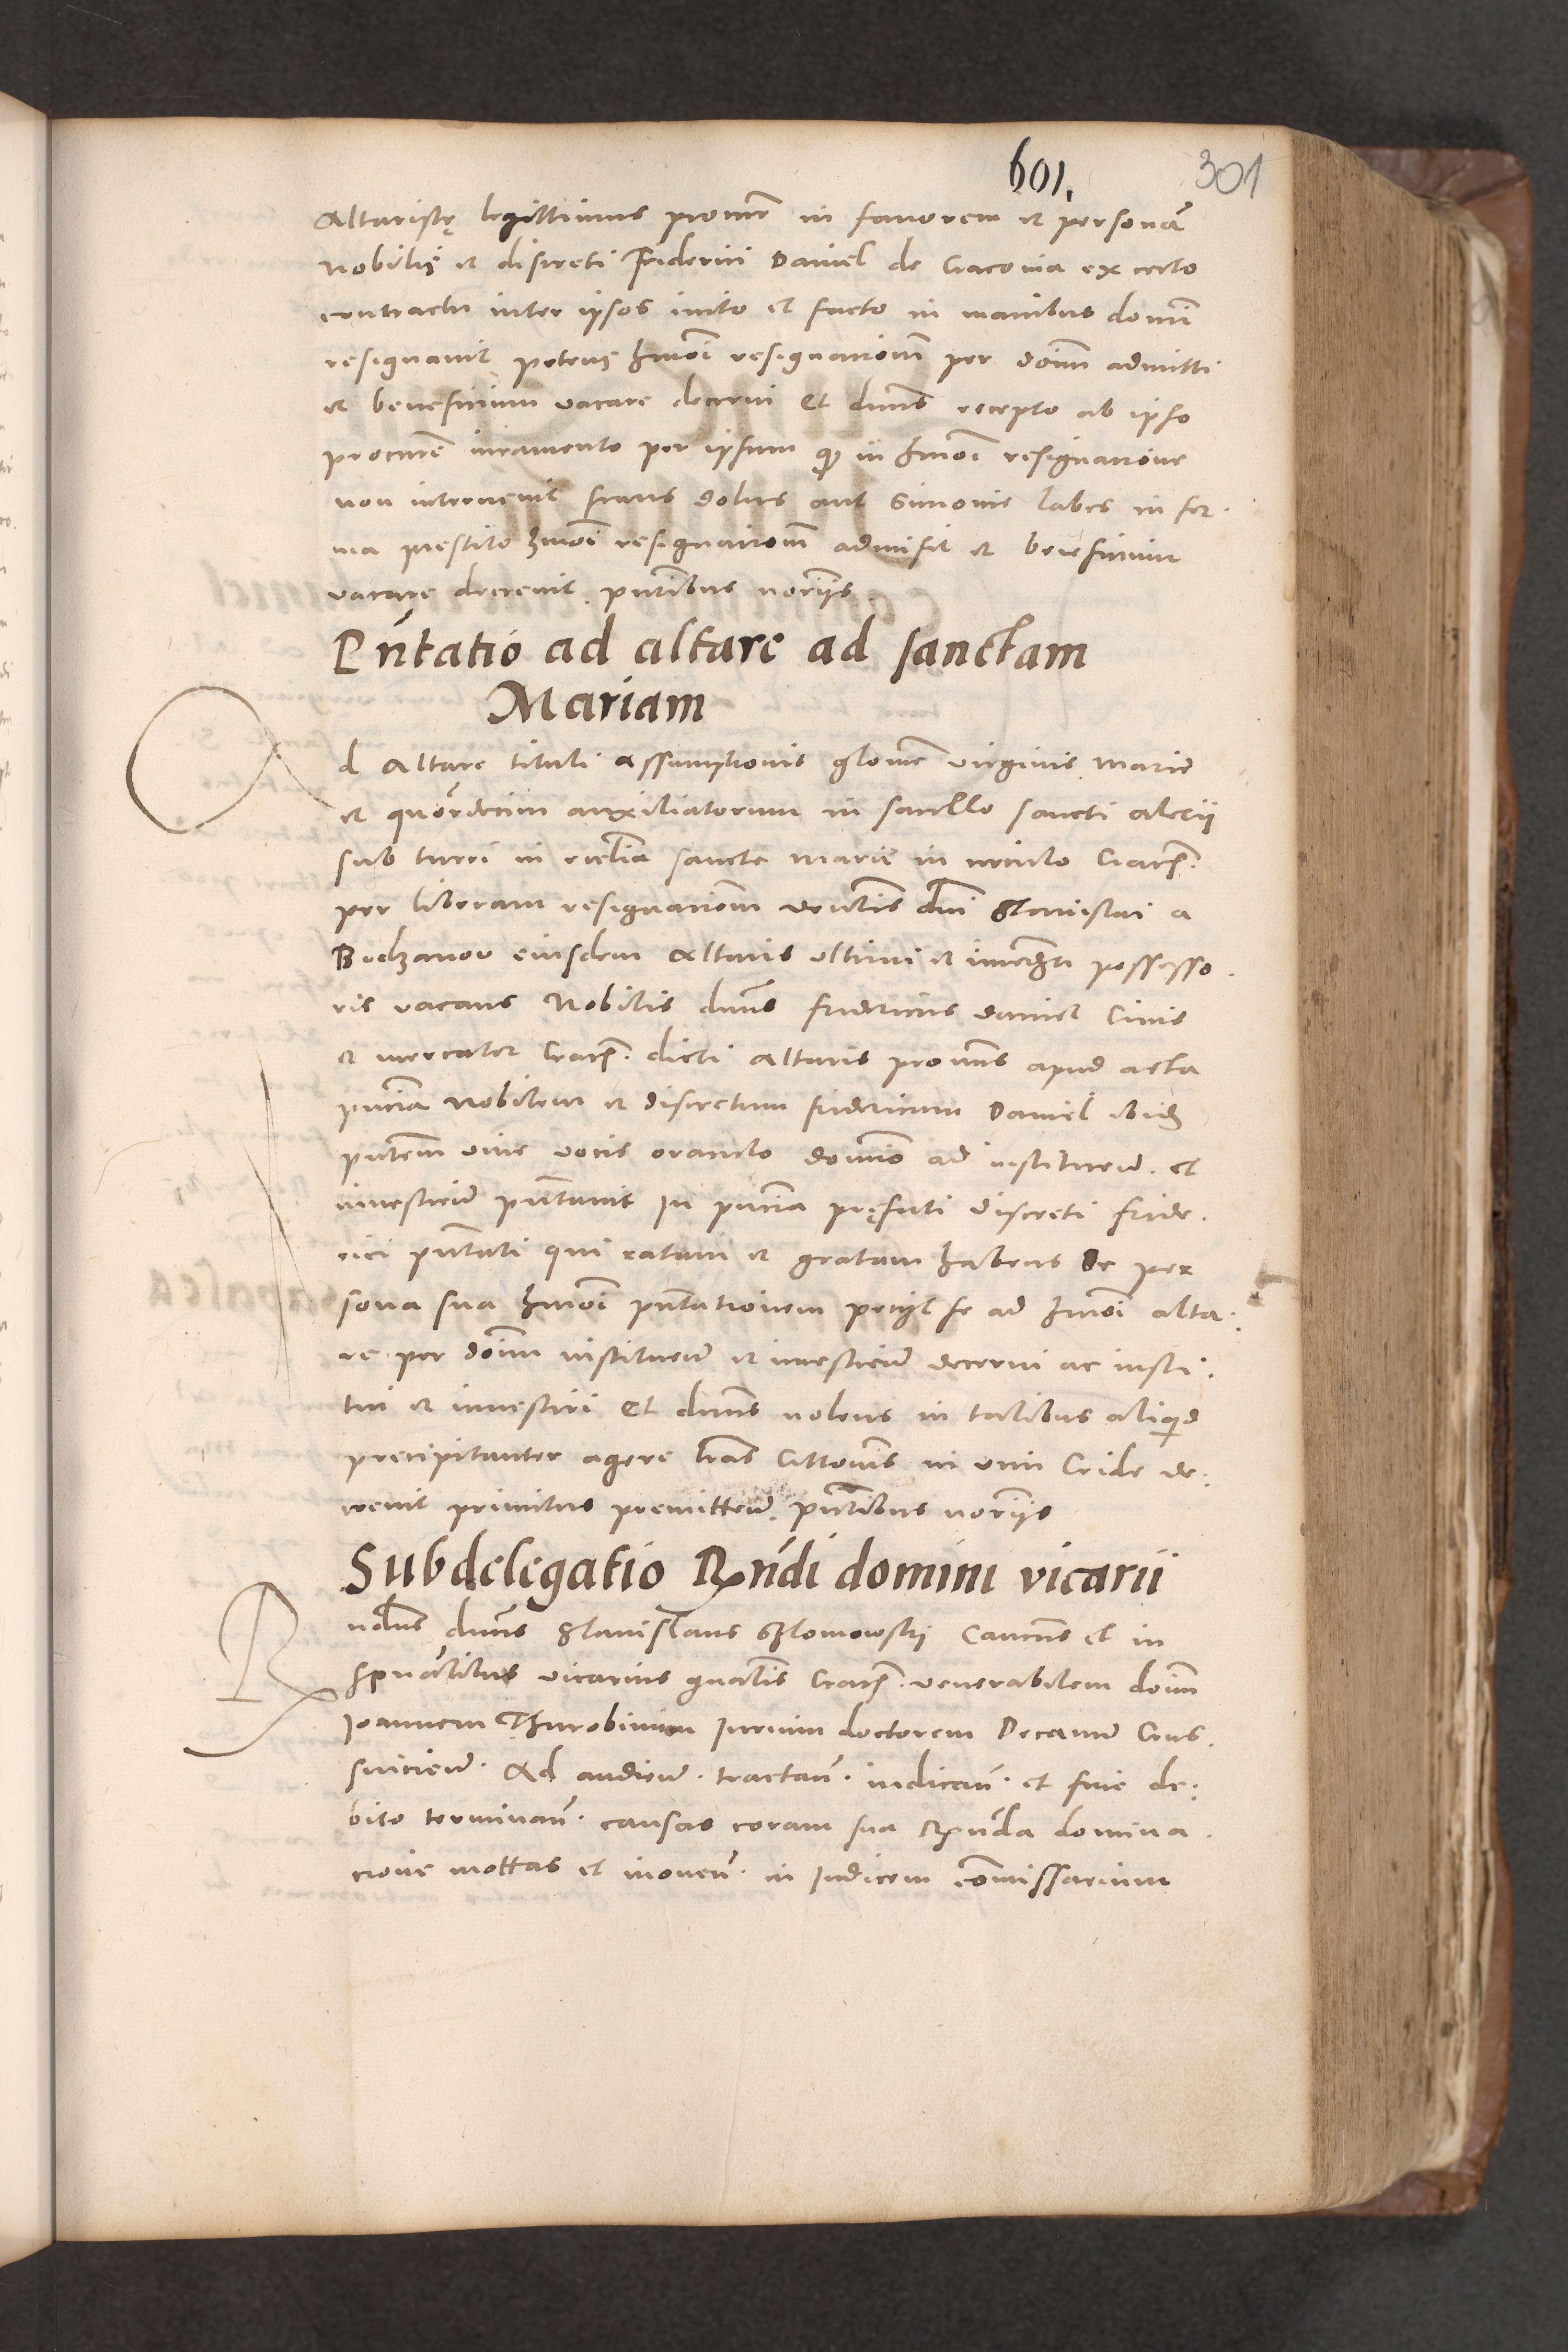 601.
301
Altaristę legittimus procur in favorem et personā
Nobilis et discreti Friderici Daniel de Cracovia ex certo
contractu inter ipsos inito et facto in manibus domi
resignavit petens hmōi resignationem per dōm admitti
et beneficium vacare decerni Et dnus recepto ab ipso
procure iuramento per ipsum q in hmōi resignatione
non intervenit fraus dolus aut Simonie labes in for
ma prestito hmōi resignationem admisit et beneficium
vacare decrevit. pntibus noriis
Pntatio ad altare ad sanctam
Mariam
Ad Altare tituli Assumptionis glorie virginis Marie
et quordecim auxiliatorum in sacello sancti Alexii
sub turri in ecclia sancte Marie in circulo Crac.
per liberam resignationem venlis dni Stanislai a
Budzanov eiusdem Altaris ultimi et immediati possesso
ris vacans Nobilis dnus Fridericus Daniel Civis
et mercator Crac. dicti Altaris provisus apud acta
pncia Nobilem et discretum Fridericum Daniel ibid
pntem vive vocis oraculo domino ad instituen. et
investien pntavit In pncia pręfati discreti Fride.
rici pntati qui ratam et gratam habens De per
sona sua hmōi pntationem petiit se ad hmōi alta.
re per dōm instituen et investien decerni ac insti.
tui et investiri Et dnus nolens in talibus aliqid
precipitanter agere lras Cittonis in vim Cride de.
crevit primitus premitten. pntibus noriis
Subdelegatio Rndi domini vicarii
Rndus dnus Stanislaus Szlomowskij Cancus et in
spualibus vicarius gnalis Crac. venerabilem dōm
Joannem Thurobinum Iurium doctorem Decanum Crus.
suicien. Ad audien. tractan. iudican. et fine de.
bito terminan. causas coram sua Rnda domina.
cione mottas et moven. in Iudicem commissarium